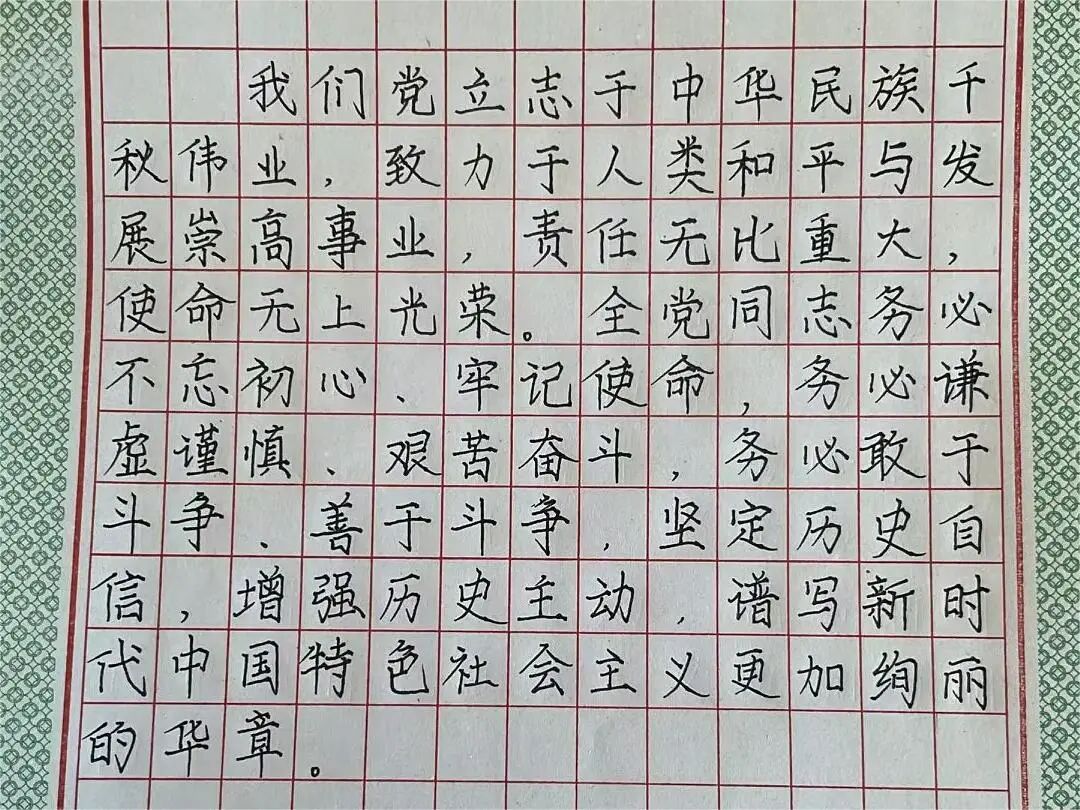 我们党立志于中华民族千
秋伟业，致力于人类和平与发
展崇高事业，责任无比重大，
使命无上光荣。全党同志务必
不忘初心、牢记使命，务必谦
虚谨慎、艰苦奋斗，务必敢于
斗争、善于斗争，坚定历史自
信，增强历史主动，谱写新时
代中国特色社会主义更加绚丽
的华章。